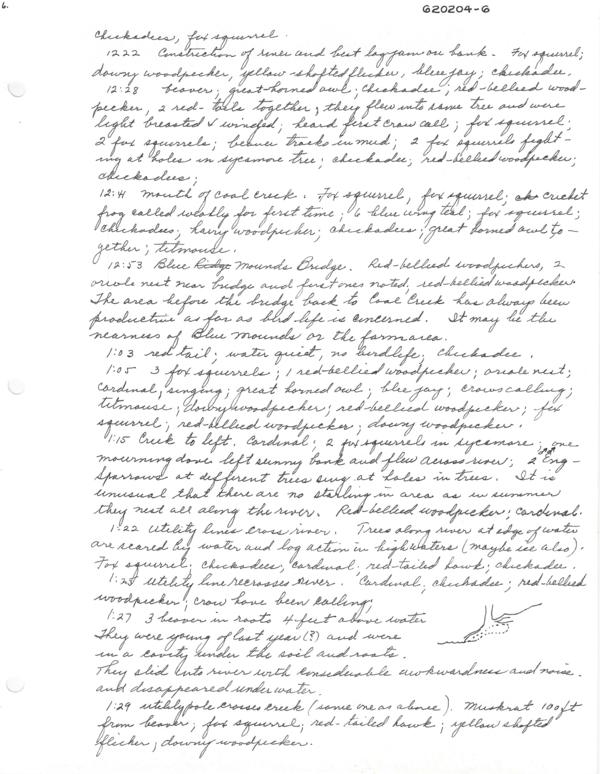 6.
620204-6
chickadees, fox squirrel.
1222 Constriction of river and best logjam on bank. Fox squirrel;
downy woodpecker, yellow-shafted flicker, blue jay; chickadee.
12:28 beaver; great-horned owl; chickadee; red-bellied wood-
pecker, 2 red-tails together, they flew into same tree and were
light breasted & winged; heard first crow call; fox squirrel;
2 fox squirrels; beaver tracks in mud; 2 fox squirrels fight-
ing at holes in sycamore tree; chickadee; red-bellied woodpecker;
chickadees;
12:41 mouth of coal creek. Fox squirrel, fox squirrel; cricket
frog called volubly for first time; 6 blue wing teal; fox squirrel;
chickadees, hairy woodpecker; chickadees; great horned owl to-
gether; titmouse.
12:53 Blue Ridge Mounds Bridge. Red-bellied woodpeckers, 2
oriole nest near bridge and first ones noted, red-bellied woodpecker.
The area before the bridge back to Coal Creek has always been
productive as far as bird life is concerned. It may be the
nearness of Blue Mounds or the farm area.
1:03 red tail; water quiet, no birdlife; chickadee.
1:05 3 fox squirrels; 1 red-bellied woodpecker; oriole nest;
cardinal, singing; great horned owl; blue jay; crows calling;
titmouse; downy woodpecker; red-bellied woodpecker; fox
squirrel; red-bellied woodpecker; downy woodpecker.
1:15 Creek to left. Cardinal; 2 fox squirrels in sycamore; one
mourning dove left sunny bank and flew across river; 2 Eng-
sparrows at different trees sing at holes in trees. It is
unusual that there are no starling in area as in summer
they nest all along the river. Red-bellied woodpecker; cardinal.
1:22 utility lines cross river. Trees along river at edge of water
are scared by water and log action in high waters (maybe ice also).
Fox squirrel; chickadees; cardinal; red-tailed hawk; chickadee.
1:25 utility line recrosses river. Cardinal, chickadee; red-bellied
woodpecker; crow have been calling;
1:27 3 beaver in roots 4 feet above water
They were young of last year (?) and were
in a cavity under the soil and roots.
They slid into river with considerable awkwardness and noise.
and disappeared under water.
1:29 utility pole crosses creek (same one as above). Muskrat 100 ft
from beaver; fox squirrel; red-tailed hawk; yellow shafted
flicker; downy woodpecker.